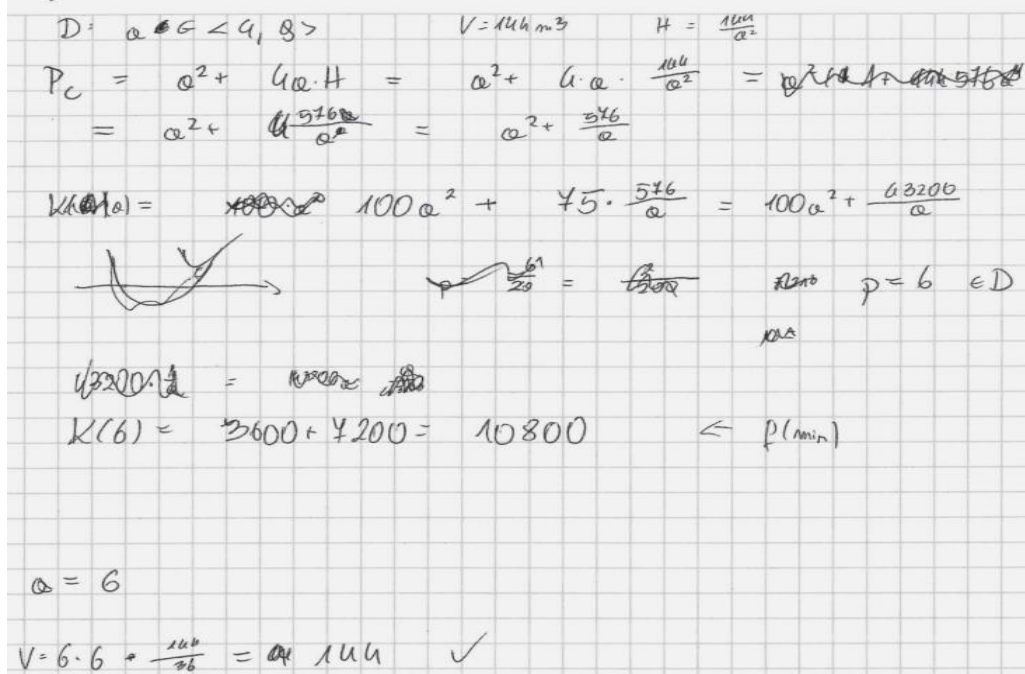 D: a ∈ <4, 8> V = 144 m3 H = 144/a²
Pc = a² + 4a·H = a² + 4·a· 144/a² =
= a² + 576/a² = a² + 576/a
K(a) = 100a² + 75· 576/a = 100a² + 43200/a
= p = 6 ∈ D
=
K(6) = 3600 + 7200 = 10800 ← f(min)
a = 6
V = 6·6· 144/36 = 144 ✓